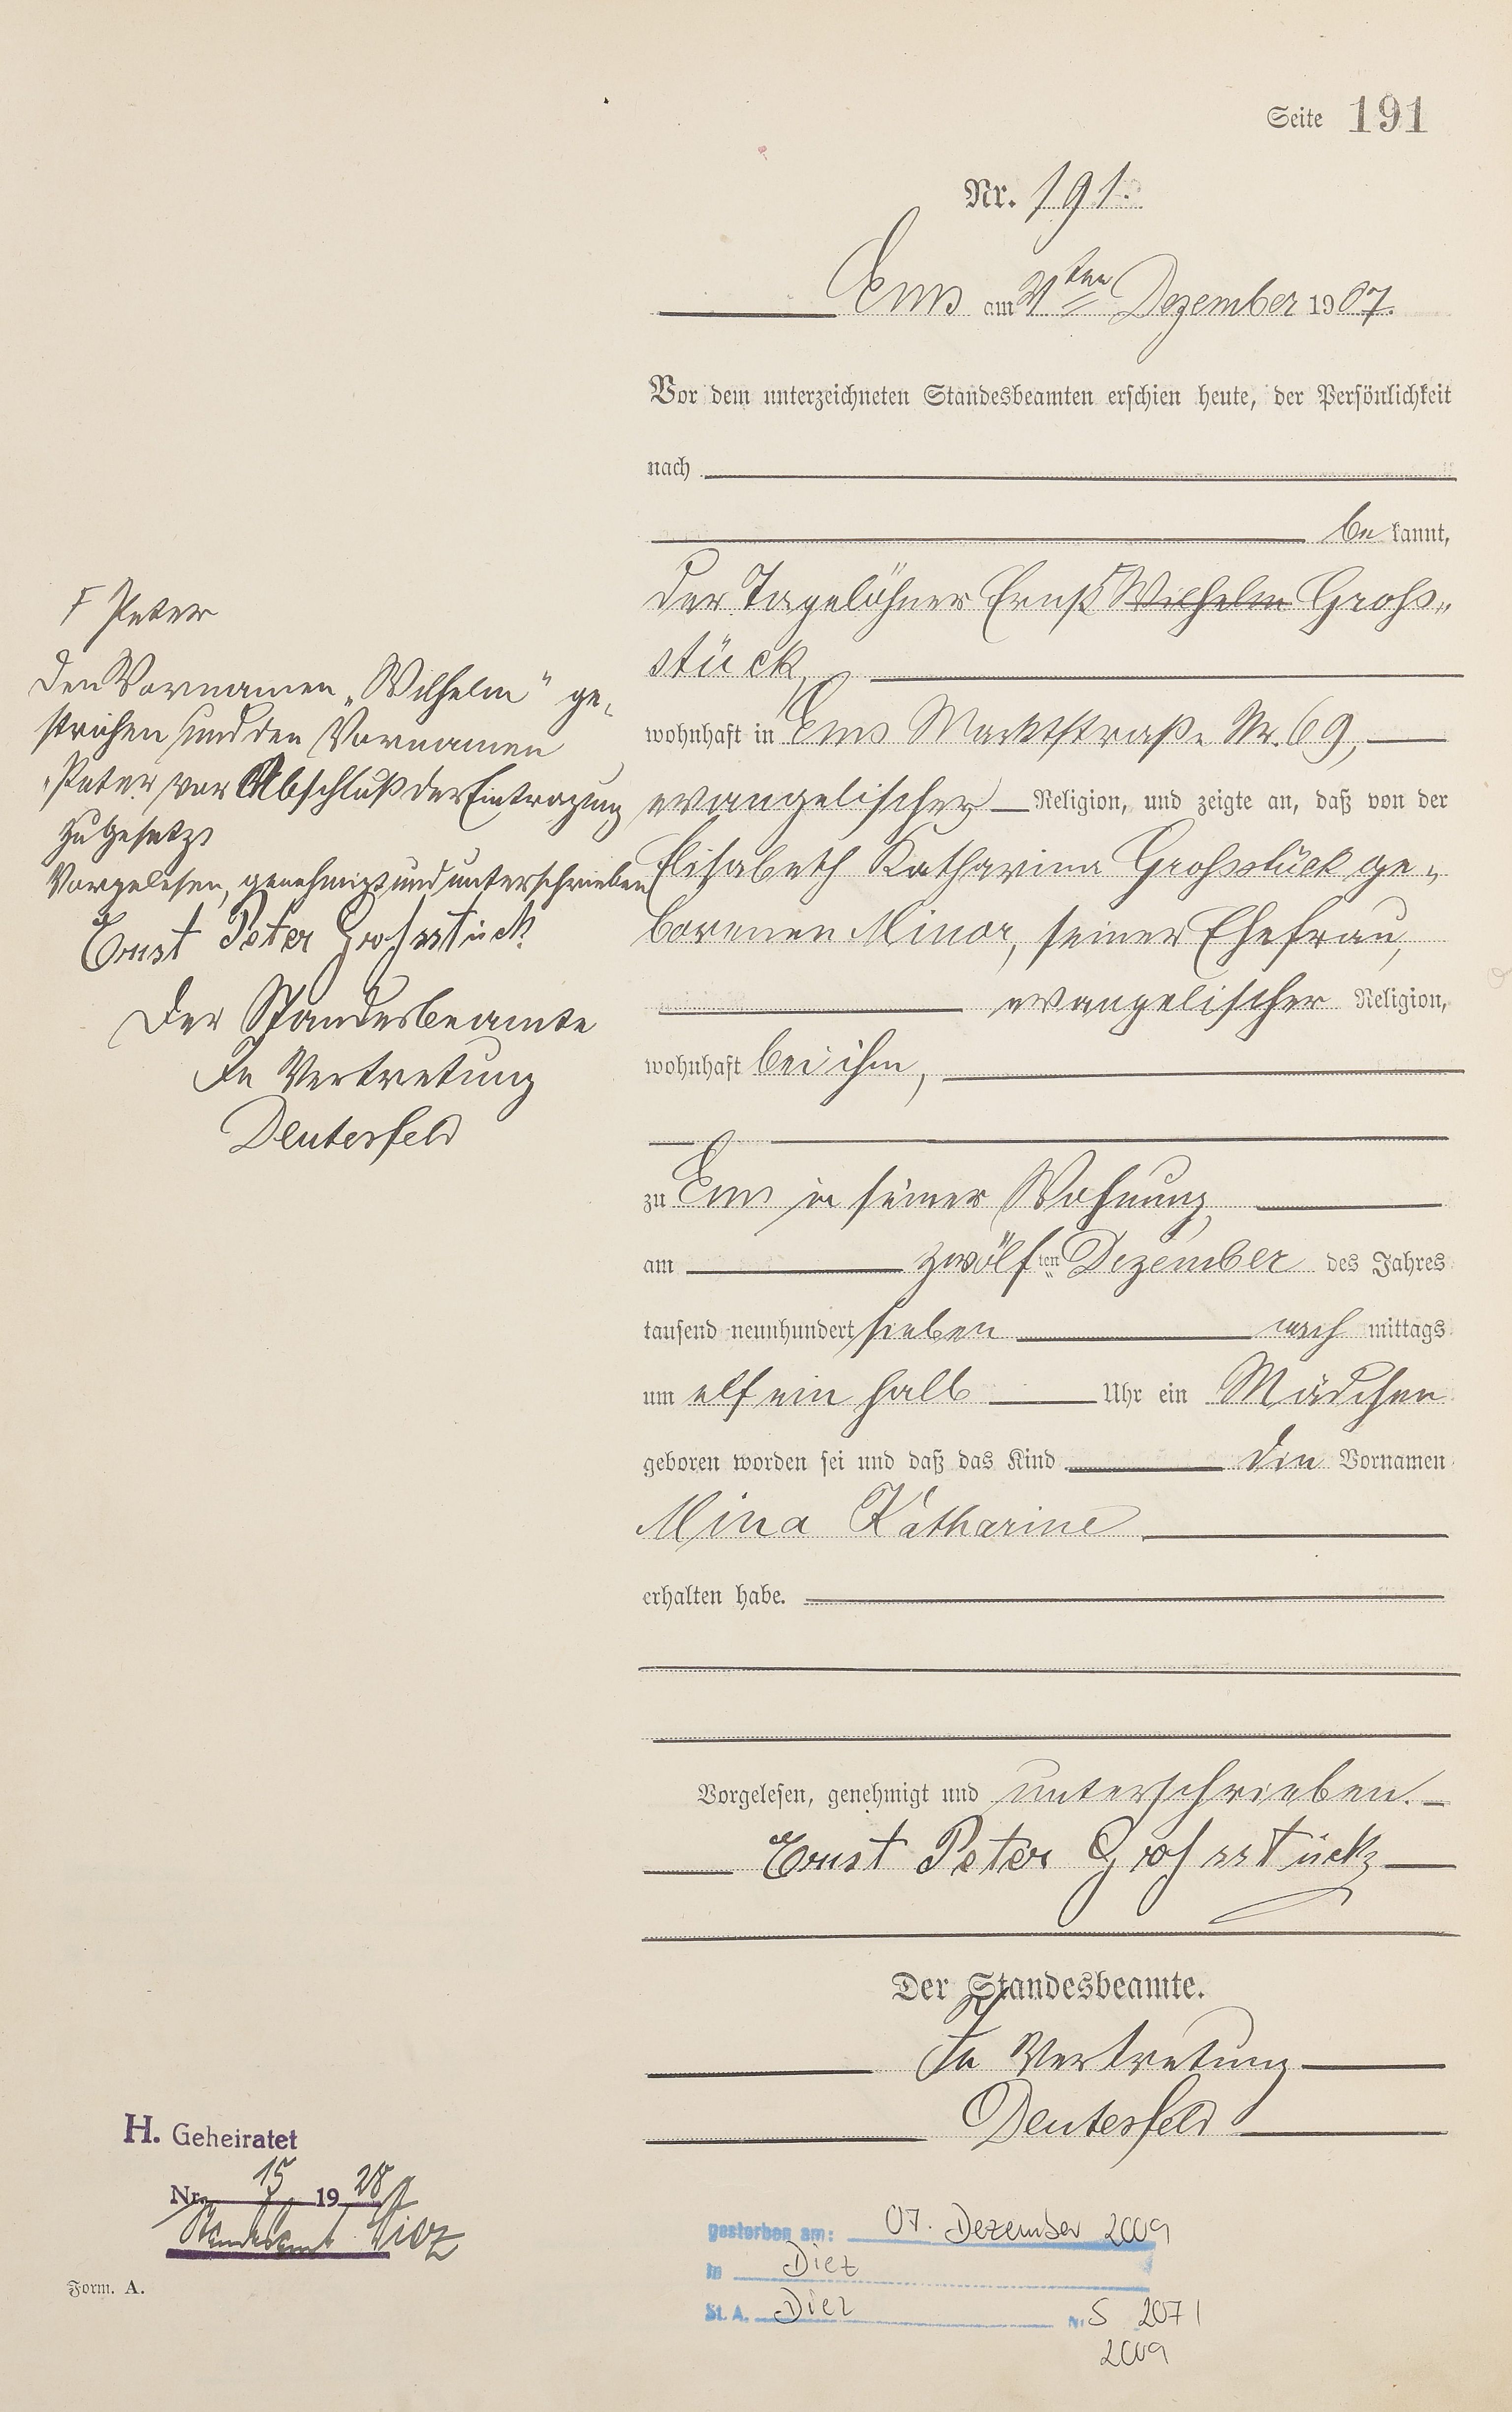 Seite 191
Nr. 191.
Ems am 21ten Dezember 1907.
Vor dem unterzeichneten Standesbeamten erschien heute, der Persönlichkeit
nach
be kannt,
der Tagelöhner Ernst ⊢ Wilhelm Grohs„
stück,
wohnhaft in Ems Marktstraße Nr. 69,
evangelischer Religion, und zeigte an, daß von der
Elisabeth Katharina Grohsstück ge„
borenen Minor, seiner Ehefrau,
evangelischer Religion,
wohnhaft bei ihm,
zu Ems in seiner Wohnung,
am zwölften Dezember des Jahres
tausend neunhundert sieben nach mittags
um elf ein halb Uhr ein Mädchen
geboren worden sei und daß das Kind den Vornamen
Mina Katharine
erhalten habe.
Vorgelesen, genehmigt und unterschrieben.
Ernst Peter Grohsstück
Der Standesbeamte.
In Vertretung
Deuterfeld
⊢ Peter
Den Vornamen „Wilhelm" ge„
strichen und den Vornamen
„Peter vor Abschluß der Eintragung
zugesetzt
Vorgelesen, genehmigt und unterschrieben
Ernst Peter Grohsstück
Der Standesbeamte
In Vertretung
Deuterfeld
H. Geheiratet
Nr. 15 1928
Standesamt Diez
Form. A.
gestorben am: 07. Dezember 2009
in Diez
St. A. Diez Nr. S 207 /
2009